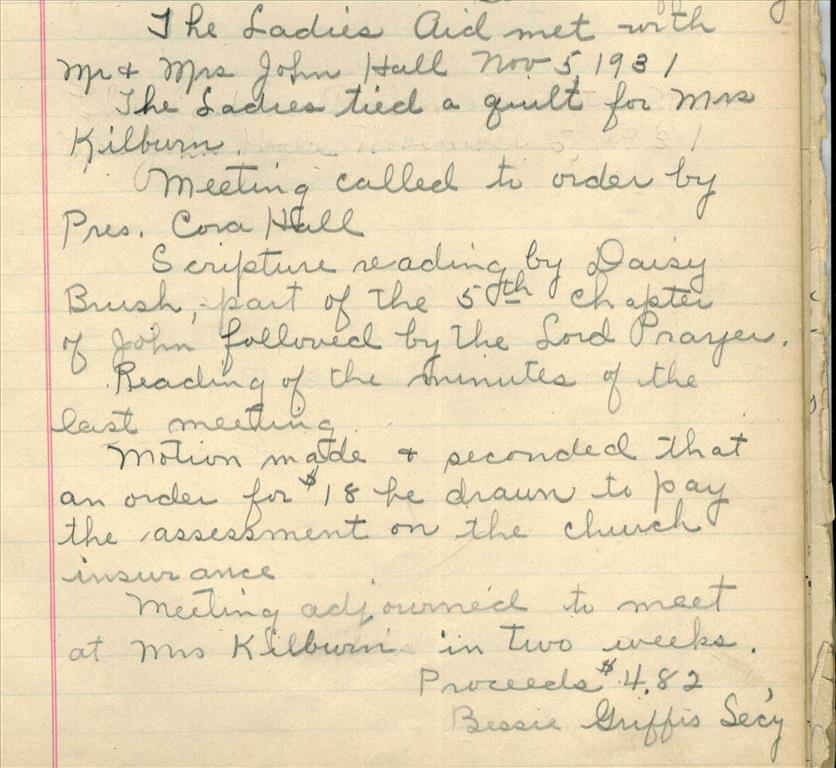 The Ladies Aid met with
Mr & Mrs John Hall Nov 5, 1931
The Ladies tied a quilt for Mrs
Kilburn.
Meeting called to order by
Pres. Cora Hall
Scripture reading by Daisy
Brush, part of the 5th chapter
of John followed by the Lord Prayer.
Reading of the minutes of the
last meeting.
Motion made & seconded that
an order for $18 be drawn to pay
the assessment on the church
insurance
Meeting adjourned to meet
at Mrs Kilburn in two weeks.
Proceeds $4.82
Bessie Griffis Sec'y